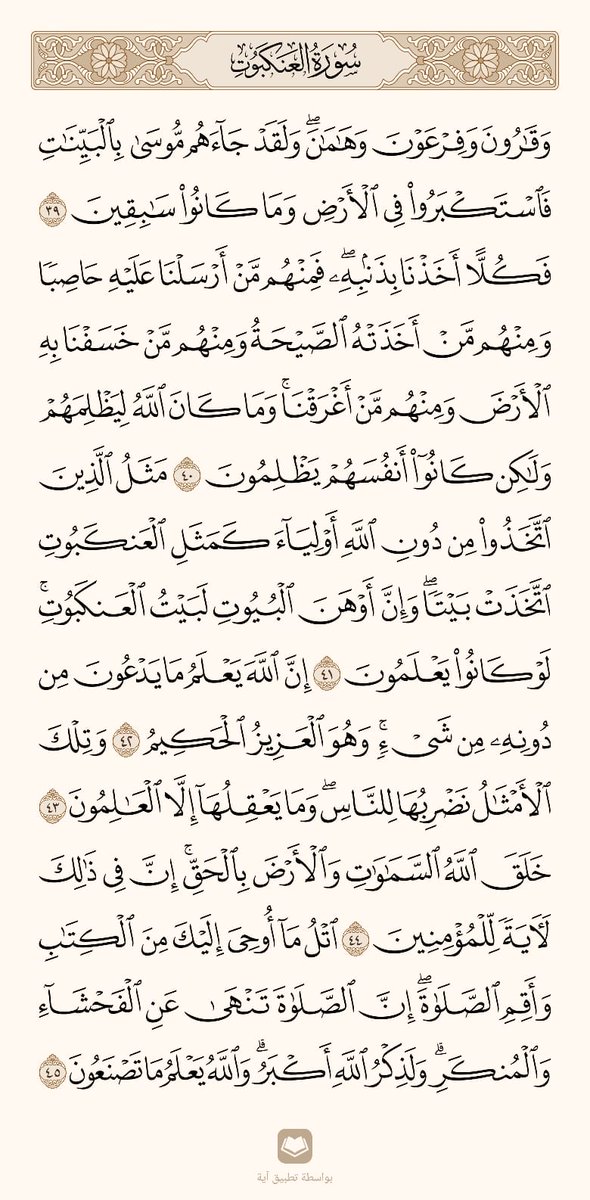 سُورَةُ العَنكَبُوتِ
وَقَٰرُونَ وَفِرۡعَوۡنَ وَهَٰمَٰنَۖ وَلَقَدۡ جَآءَهُم مُّوسَىٰ بِٱلۡبَيِّنَٰتِ
فَٱسۡتَكۡبَرُواْ فِي ٱلۡأَرۡضِ وَمَا كَانُواْ سَٰبِقِينَ ٣٩
فَكُلًّا أَخَذۡنَا بِذَنۢبِهِۦۖ فَمِنۡهُم مَّنۡ أَرۡسَلۡنَا عَلَيۡهِ حَاصِبٗا
وَمِنۡهُم مَّنۡ أَخَذَتۡهُ ٱلصَّيۡحَةُ وَمِنۡهُم مَّنۡ خَسَفۡنَا بِهِ
ٱلۡأَرۡضَ وَمِنۡهُم مَّنۡ أَغۡرَقۡنَاۚ وَمَا كَانَ ٱللَّهُ لِيَظۡلِمَهُمۡ
وَلَٰكِن كَانُوٓاْ أَنفُسَهُمۡ يَظۡلِمُونَ ٤٠ مَثَلُ ٱلَّذِينَ
ٱتَّخَذُواْ مِن دُونِ ٱللَّهِ أَوۡلِيَآءَ كَمَثَلِ ٱلۡعَنكَبُوتِ
ٱتَّخَذَتۡ بَيۡتٗاۖ وَإِنَّ أَوۡهَنَ ٱلۡبُيُوتِ لَبَيۡتُ ٱلۡعَنكَبُوتِۚ
لَوۡ كَانُواْ يَعۡلَمُونَ ٤١ إِنَّ ٱللَّهَ يَعۡلَمُ مَا يَدۡعُونَ مِن
دُونِهِۦ مِن شَيۡءٖۚ وَهُوَ ٱلۡعَزِيزُ ٱلۡحَكِيمُ ٤٢ وَتِلۡكَ
ٱلۡأَمۡثَٰلُ نَضۡرِبُهَا لِلنَّاسِۖ وَمَا يَعۡقِلُهَآ إِلَّا ٱلۡعَٰلِمُونَ ٤٣
خَلَقَ ٱللَّهُ ٱلسَّمَٰوَٰتِ وَٱلۡأَرۡضَ بِٱلۡحَقِّۚ إِنَّ فِي ذَٰلِكَ
لَأٓيَةٗ لِّلۡمُؤۡمِنِينَ ٤٤ ٱتۡلُ مَآ أُوحِيَ إِلَيۡكَ مِنَ ٱلۡكِتَٰبِ
وَأَقِمِ ٱلصَّلَوٰةَۖ إِنَّ ٱلصَّلَوٰةَ تَنۡهَىٰ عَنِ ٱلۡفَحۡشَآءِ
وَٱلۡمُنكَرِۗ وَلَذِكۡرُ ٱللَّهِ أَكۡبَرُۗ وَٱللَّهُ يَعۡلَمُ مَا تَصۡنَعُونَ ٤٥
بواسطة تطبيق آية